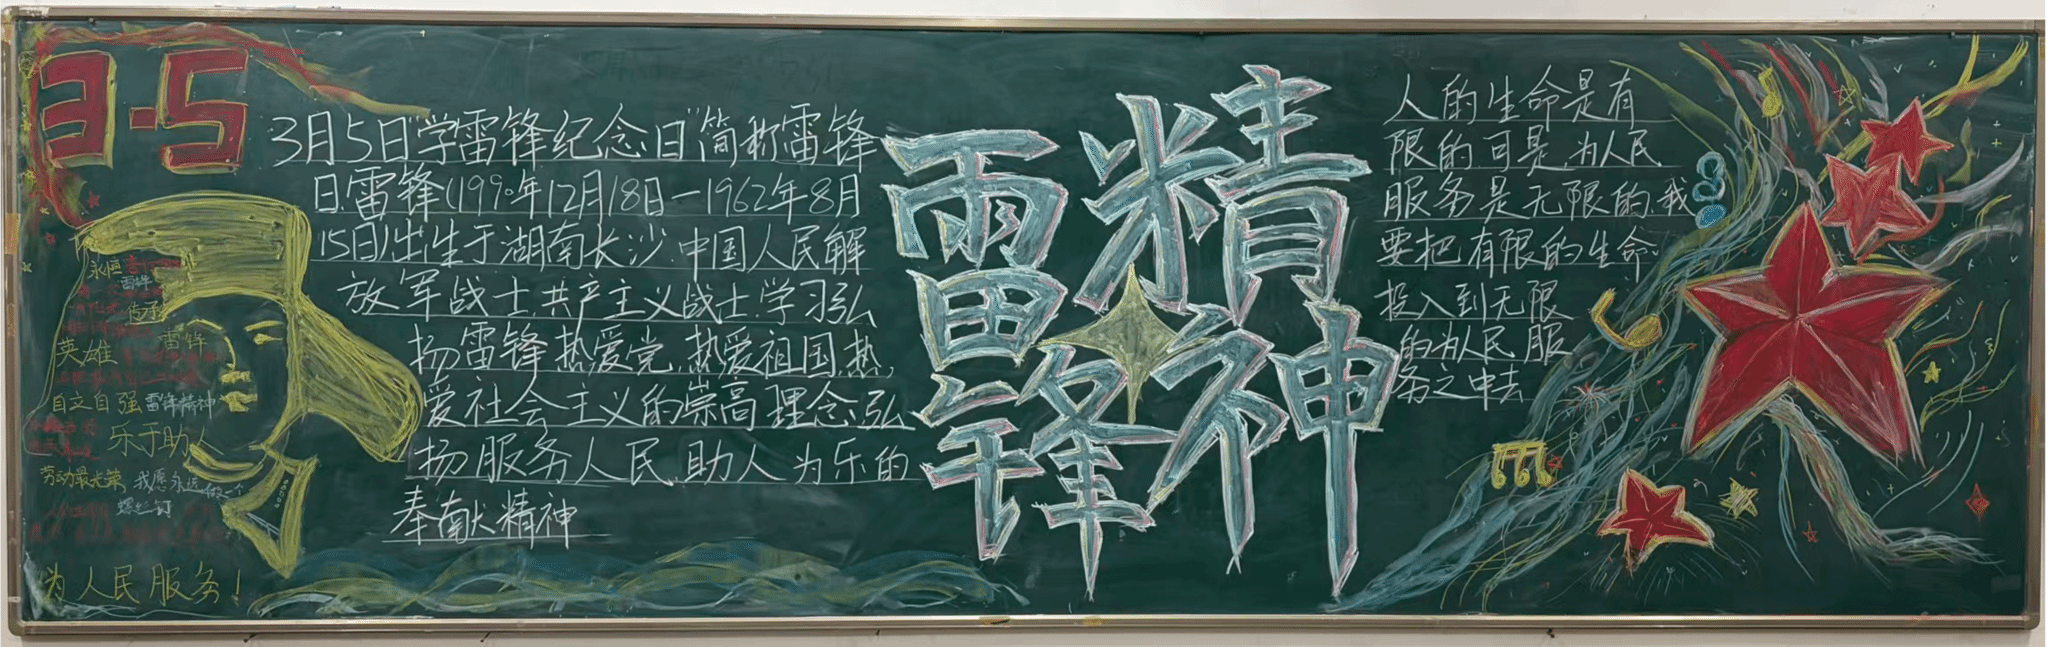 3.5
3月5日学雷锋纪念日"简称雷锋
日.雷锋(1990年12月18日—1962年8月
15日)出生于湖南长沙.中国人民解
放军战士.共产主义战士.学习弘
扬雷锋热爱党.热爱祖国.热
爱社会主义的崇高理念.弘
扬服务人民.助人为乐的
奉献精神
雷锋
精神
人的生命是有
限的.可是.为人民
服务是无限的.我
要把有限的生命.
投入到无限
的为人民服
务之中去
永恒
雷锋
传承
雷锋
英雄
自立自强 雷锋精神
乐于助人
劳动最光荣 我愿永远做一个
螺丝钉
为人民服务!